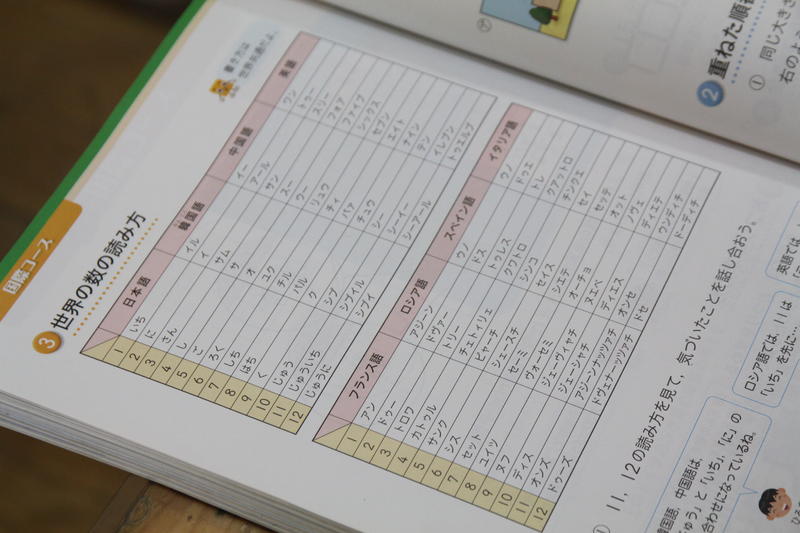 国際コース
3 世界の数の読み方
書き方は
世界共通だよ。
日本語 韓国語 中国語 英語
1 いち イル イー ワン
2 に イ アール トゥー
3 さん サム サン スリー
4 し サ スー フォア
5 ご オ ウー ファイブ
6 ろく ユク リュウ シックス
7 しち チル チィ セブン
8 はち パル バァ エイト
9 く ク チュウ ナイン
10 じゅう シブ シー テン
11 じゅういち シブイル シーイー イレブン
12 じゅうに シブイ シーアール トゥエルブ
フランス語 ロシア語 スペイン語 イタリア語
1 アン アジーン ウノ ウノ
2 ドゥー ドヴァー ドス ドゥエ
3 トロワ トリー トゥレス トレ
4 カトゥル チェトィリェ クワトロ クアットロ
5 サンク ピャーチ シンコ チンクエ
6 シス シェースチ セイス セイ
7 セット セーミ シエテ セッテ
8 ユイツ ヴォーセミ オーチョ オット
9 ヌフ ジェーヴィャチ ヌエベ ノヴェ
10 ディス ジェーシャチ ディエス ディエテ
11 オンズ アジンナッツァチ オンセ ウンディチ
12 ドゥーズ ドヴェナーッツァチ ドセ ドーディチ
① 11，12の読み方を見て，気づいたことを話し合おう。
韓国語，中国語は，
「じゅう」と「いち」，「に」の
合わせになっているね。
ロシア語では，11は
「いち」を先に…
英語では，
2 重ねた順番
① 同じ大きさ
右のよ